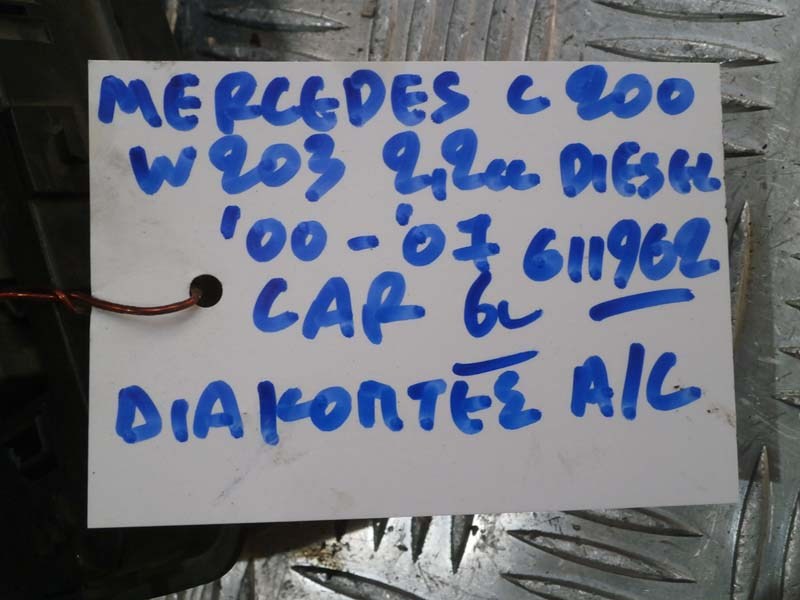 MERCEDES C 200
W203 2,2cc DIESEL
'00-'07 611962
CAR 6L
ΔΙΑΚΟΠΤΕΣ A/C